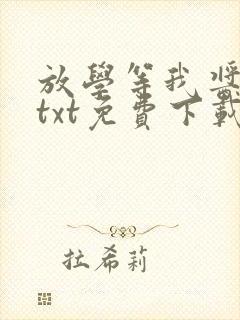 放學等我將
txt免費下載
拉希莉